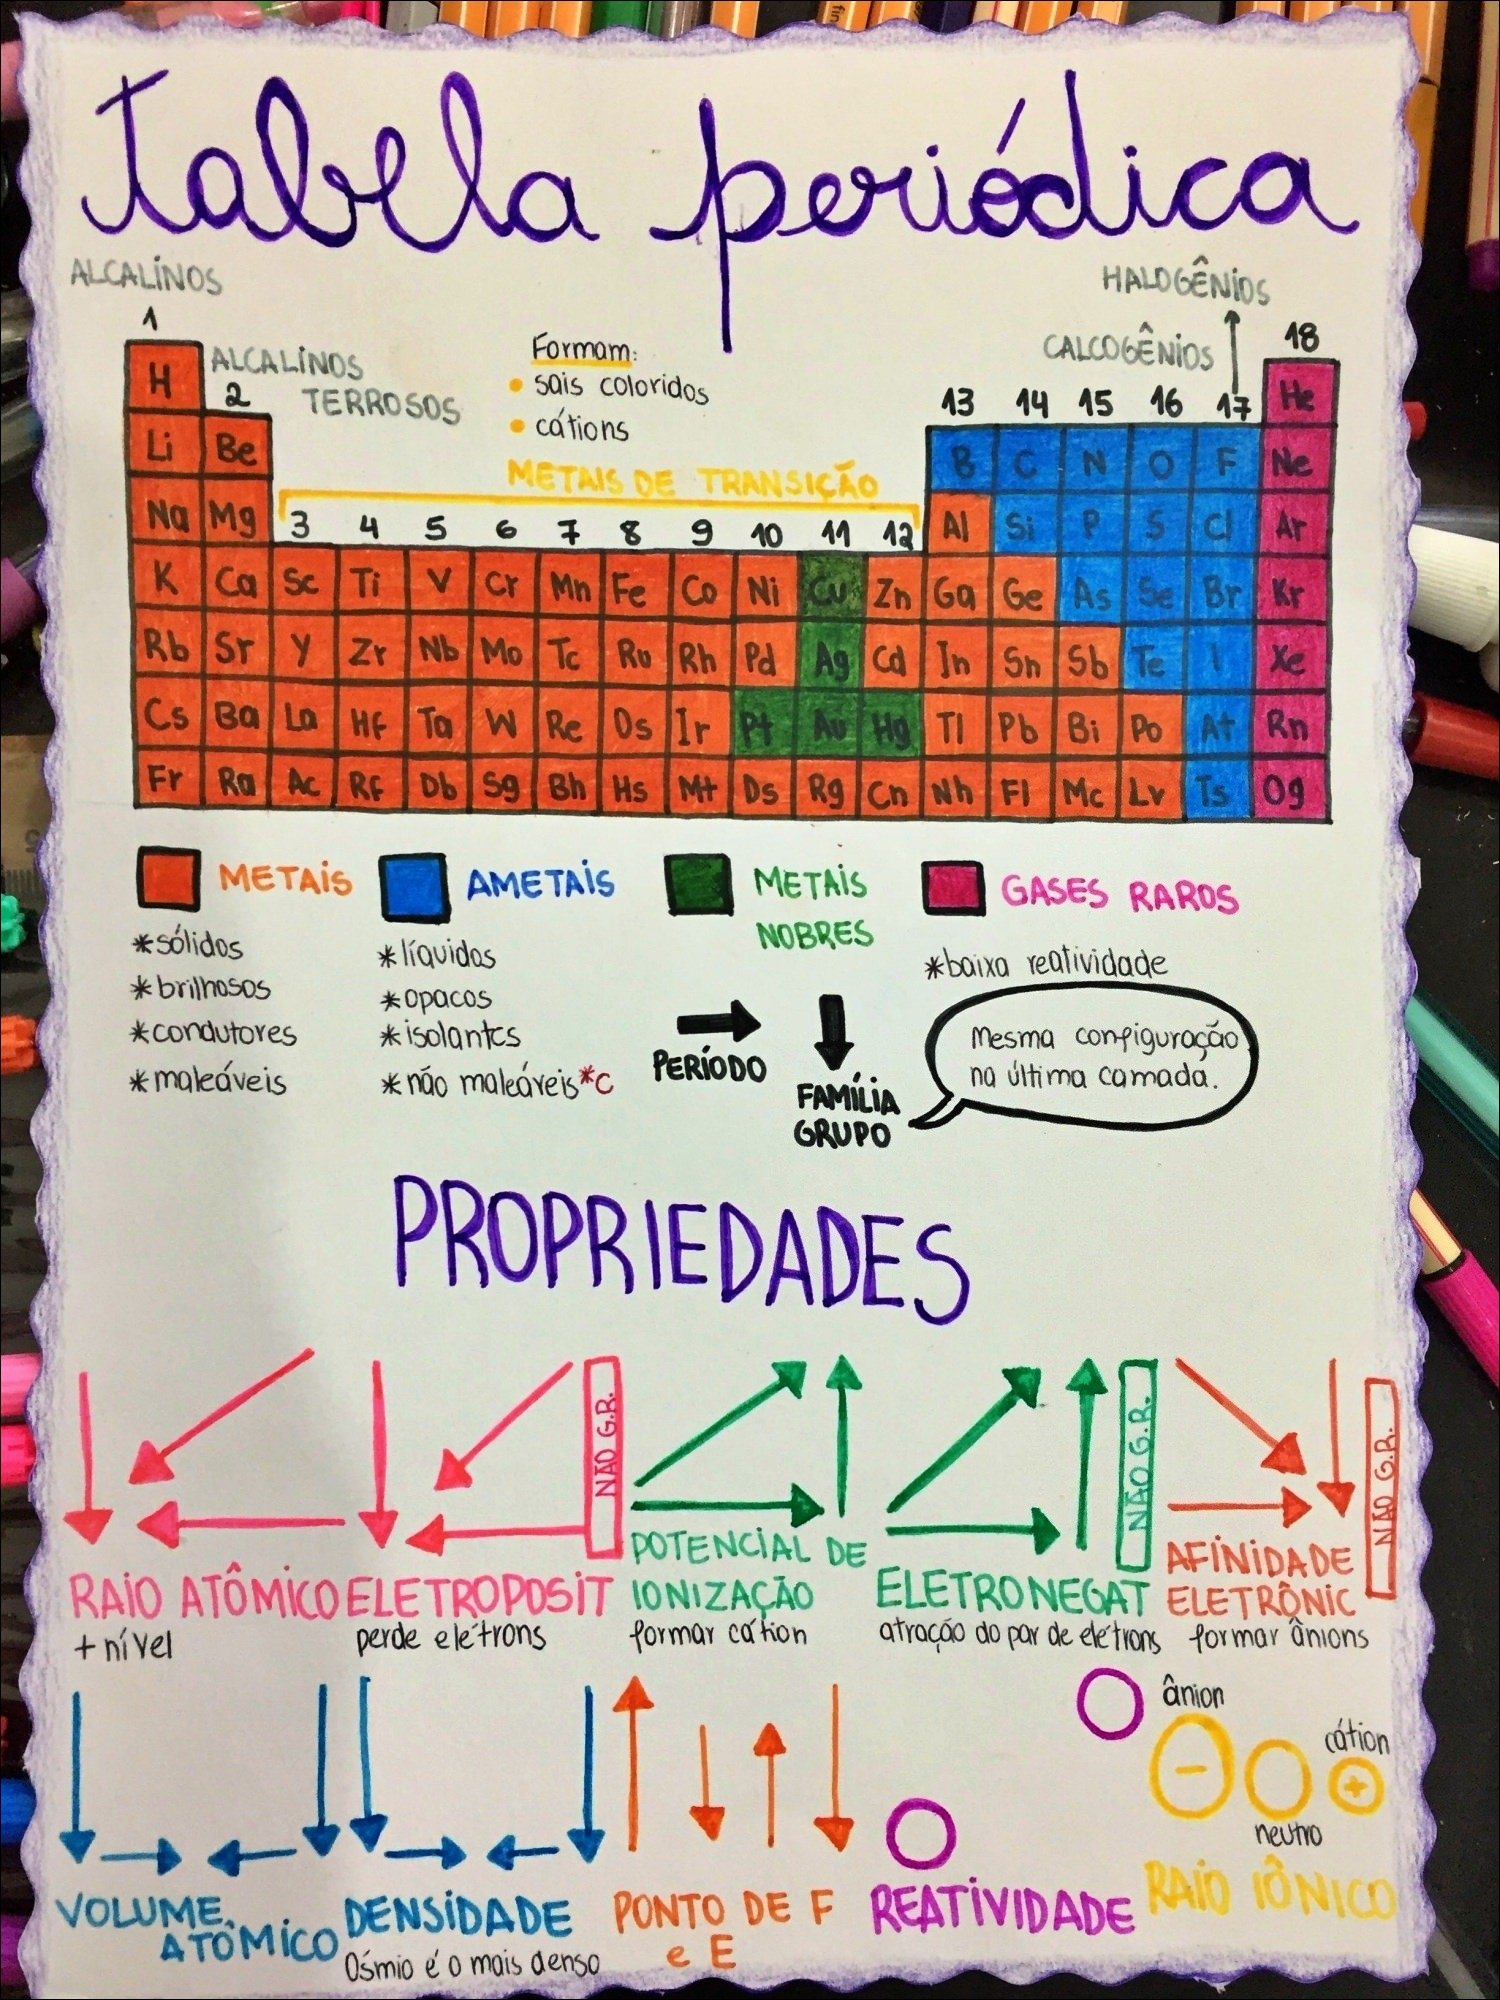 tabela periódica
ALCALINOS
HALOGÊNIOS
1
ALCALINOS
TERROSOS
2
Formam:
• sais coloridos
• cátions
CALCOGÊNIOS
18
13 14 15 16 17
METAIS DE TRANSIÇÃO
3 4 5 6 7 8 9 10 11 12
H He
Li Be B C N O F Ne
Na Mg Al Si P S Cl Ar
K Ca Sc Ti V Cr Mn Fe Co Ni Cu Zn Ga Ge As Se Br Kr
Rb Sr Y Zr Nb Mo Tc Ru Rh Pd Ag Cd In Sn Sb Te I Xe
Cs Ba La Hf Ta W Re Os Ir Pt Au Hg Tl Pb Bi Po At Rn
Fr Ra Ac Rf Db Sg Bh Hs Mt Ds Rg Cn Nh Fl Mc Lv Ts Og
METAIS
*sólidos
*brilhosos
*condutores
*maleáveis
AMETAIS
*líquidos
*opacos
*isolantes
*não maleáveis*C
METAIS
NOBRES
GASES RAROS
*baixa reatividade
PERÍODO
FAMÍLIA
GRUPO
Mesma configuração
na última camada.
PROPRIEDADES
RAIO ATÔMICO
+ nível
NÃO G.R.
ELETROPOSIT
perde elétrons
POTENCIAL DE
IONIZAÇÃO
formar cátion
NÃO G.R.
ELETRONEGAT
atração do par de elétrons
NÃO G.R.
AFINIDADE
ELETRÔNIC
formar ânions
VOLUME
ATÔMICO
DENSIDADE
Ósmio é o mais denso
PONTO DE F
e E
REATIVIDADE
ânion
−
cátion
+
neutro
RAIO IÔNICO